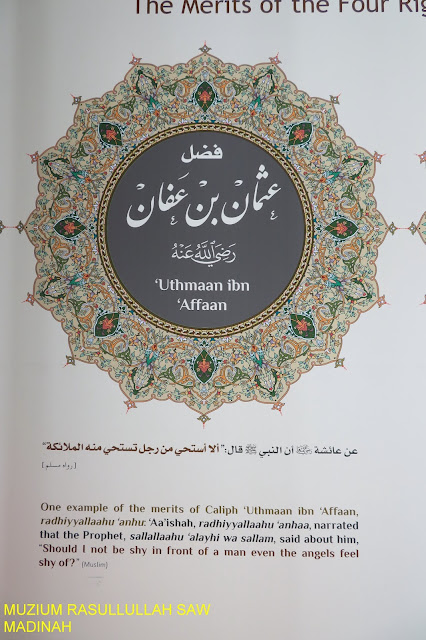 The Merits of the Four Rig
فضل
عثمان بن عفان
رضي الله عنه
‘Uthmaan ibn
‘Affaan
عن عائشة ﵂ أن النبي ﷺ قال: "ألا أستحي من رجل تستحي منه الملائكة"
[رواه مسلم]
One example of the merits of Caliph ‘Uthmaan ibn ‘Affaan,
radhiyyallaahu ‘anhu: ‘Aa’ishah, radhiyyallaahu ‘anhaa, narrated
that the Prophet, sallallaahu ‘alayhi wa sallam, said about him,
“Should I not be shy in front of a man even the angels feel
shy of?” (Muslim)
MUZIUM RASULLULLAH SAW
MADINAH